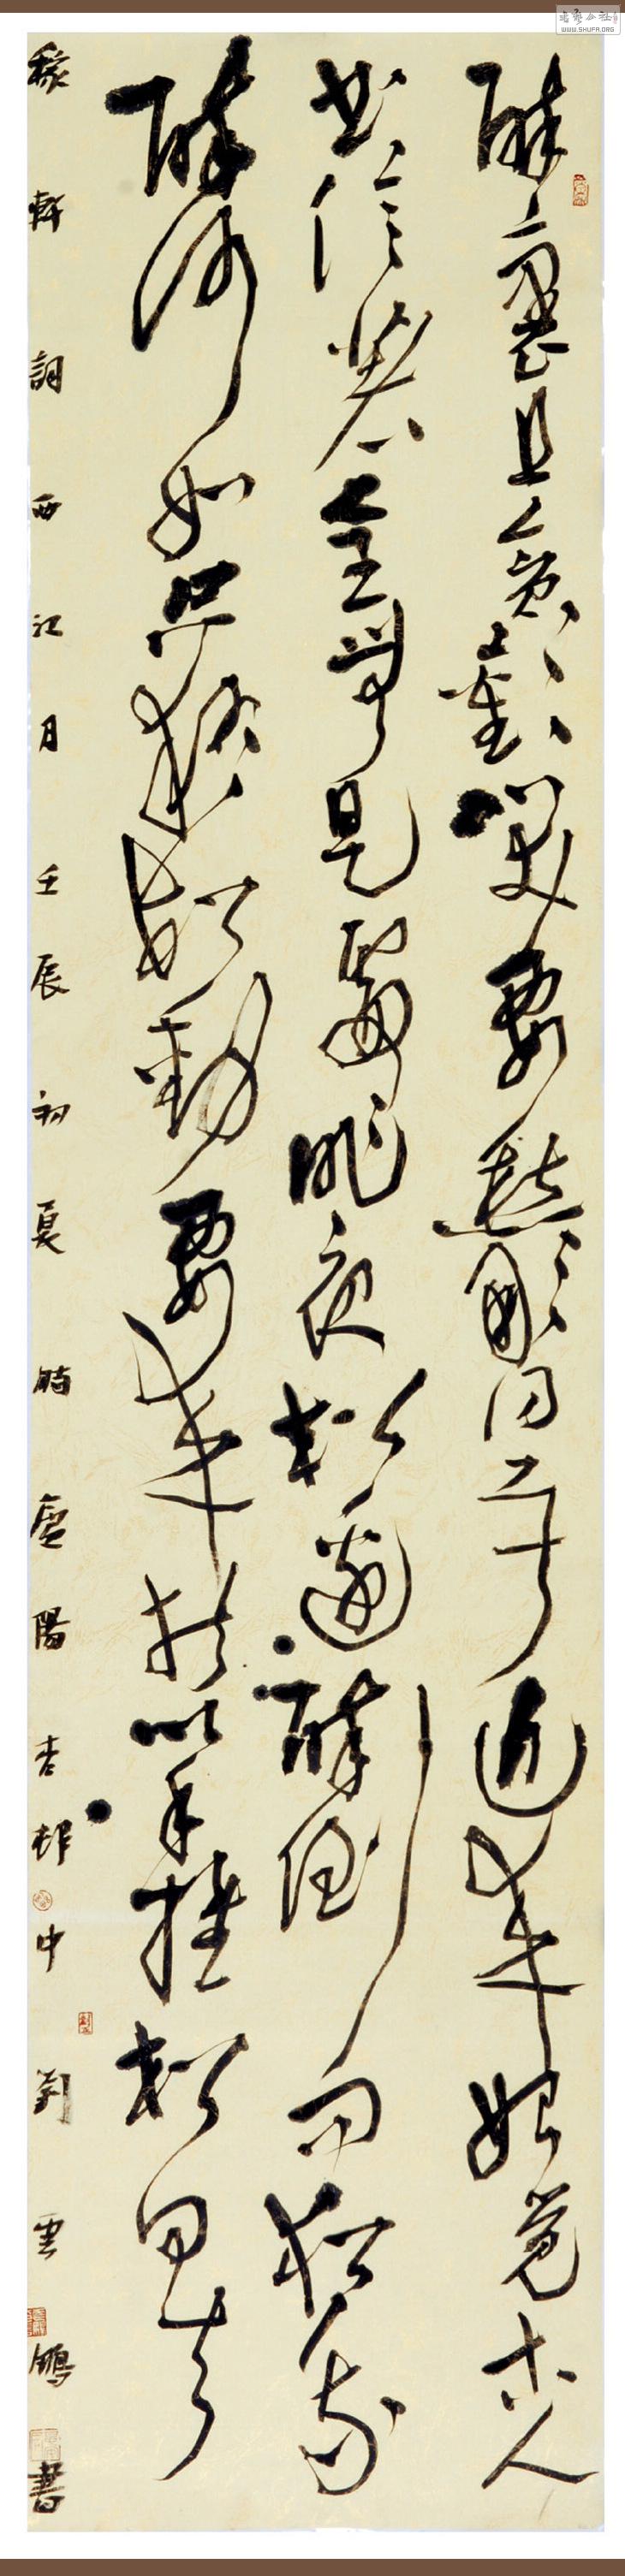 醉裏且貪歡笑要愁那得工夫近來始覺古人
書信著全無是處昨夜松邊醉倒問松我
醉何如只疑松動要來扶以手推松曰去
稼軒詞西江月壬辰初夏時陽杏邨中劉雲鵬書
WWW.SHUFA.ORG